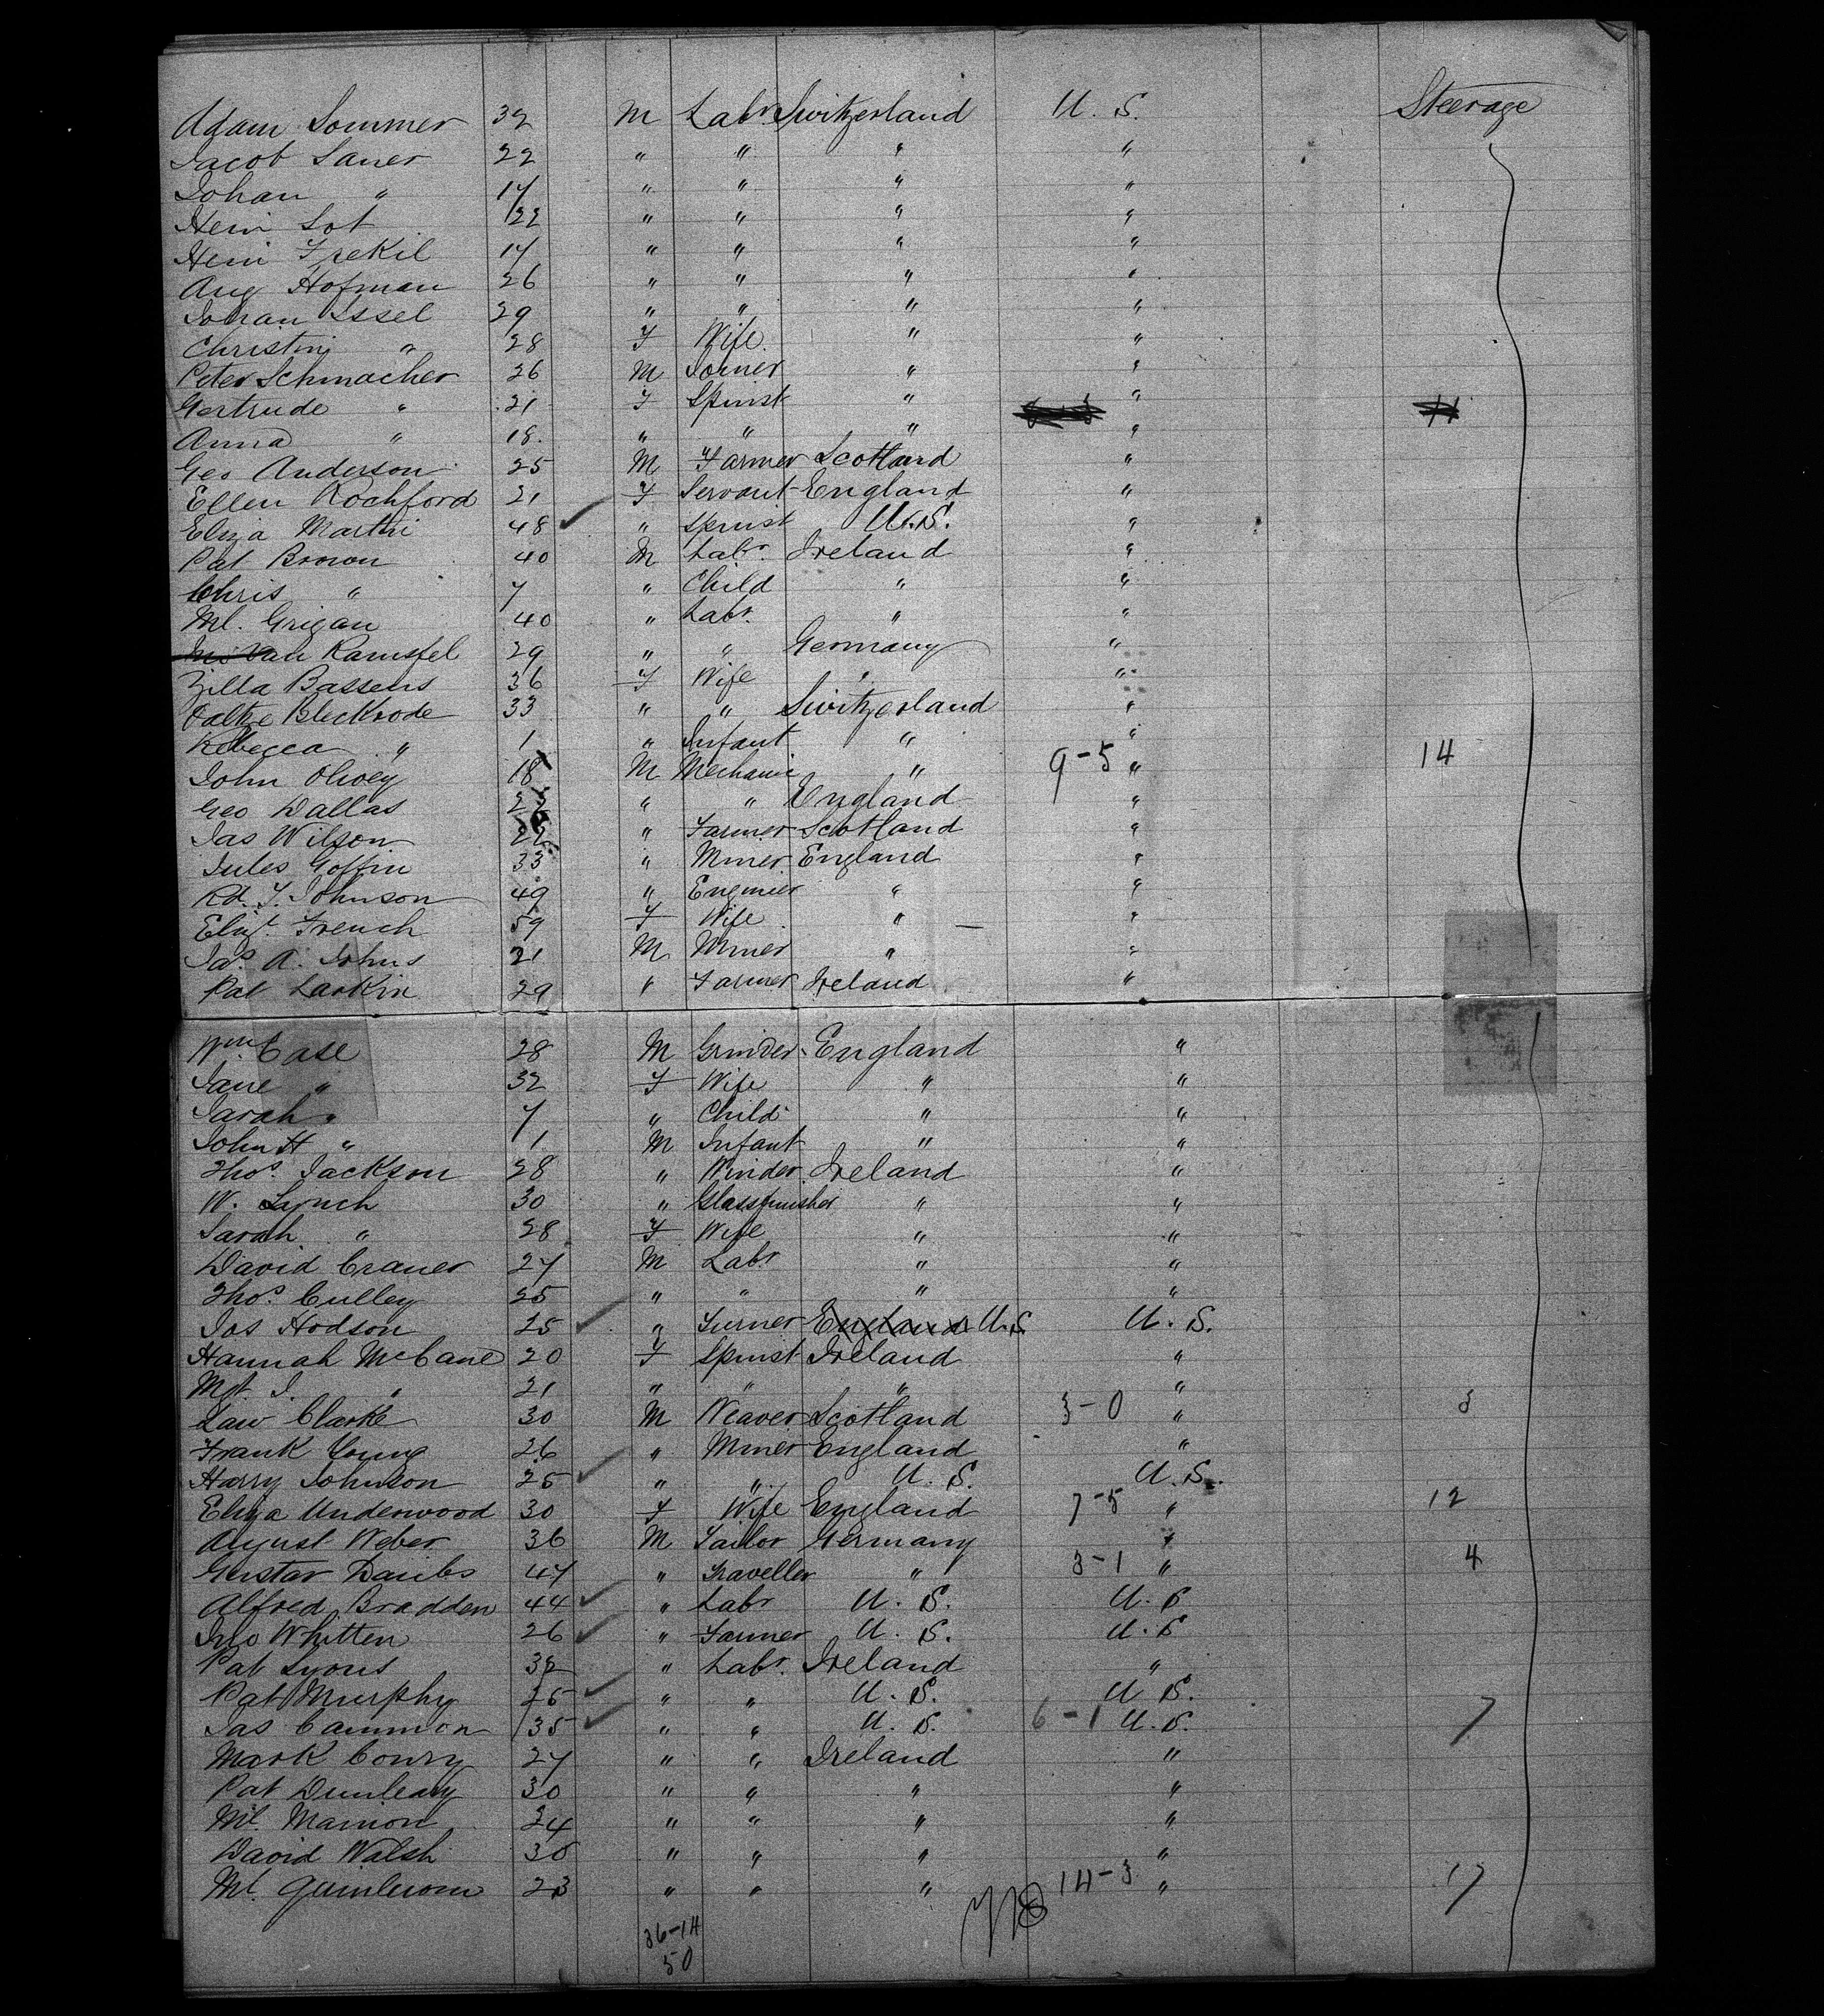 Adam Sommer 32 M Labr Switzerland U. S. Steerage
Jacob Saner 22 " " " "
Johan " 17 " " " "
Heni Sot 22 " " " "
Heni 17 " " " "
Aug Hofman 26 " " " "
Johan Issel 29 " " " "
Christin " 28 F Wife " "
Peter Schmacher 26 M Joiner " "
Gertrude " 21 F Spinst " "
Anna " 18 " " " "
Geo Anderson 25 M Farmer Scotland "
Ellen Rochford 21 F Servant England "
Eliza Martin 48 " Spinst U.S. "
Pat Brown 40 M Labr. Ireland "
Chris " 7 " Child " "
Ml. Grigan 40 " Labr. " "
Ramsfel 29 " " Germany "
Zilla Bassens 36 F Wife " "
Bleckrode 33 " " Switzerland "
Rebecca " 1 " Infant " "
John Olvey 18 M Mechanic " 9-5 " 14
Geo Dallas " " England "
Jas Wilson 22 " Farmer Scotland "
Jules Goffin 33 " Miner England "
Rd. J. Johnson 49 " Engineer " "
Elizt. French 59 F Wife " "
Jas. A. Johns 21 M Miner " "
Pat Larkin 29 " Farmer Ireland "
Wm Case 28 M Grinder England "
Jane " 32 F Wife " "
Sarah " 7 " Child " "
John H " 1 M Infant " "
Thos. Jackson 28 " Winder Ireland "
W. Lynch 30 " Glassfinisher " "
Sarah " 28 F Wife " "
David Craner 27 M Labr " "
Thos. Culley 25 " " " "
Jos Hodson 25 " Turner England U.S. U. S.
Hannah McCane 20 F Spinst Ireland "
Mgt. J. " 21 " " " "
Law Clarke 30 M Weaver Scotland 3-0 " 3
Frank Young 26 " Miner England "
Harry Johnson 25 " " U. S. U.S.
Eliza Underwood 30 F Wife England 7-5 " 12
August Weber 36 M Tailor Germany "
Gustav Daubs 47 " Traveller " 3-1 " 4
Alfred Bradden 44 " Labr U. S. U. S
Jno Whitten 26 " Farmer U. S. U. S
Pat Lyons 32 " Labr. Ireland "
Pat Murphy 25 " " U. S. U S.
Jas Cammon 35 " " U. S. 6-1 U. S. 7
Mark Conry 27 " " Ireland "
Pat Dunleavy 30 " " " "
Ml. Manion 24 " " " "
David Walsh 30 " " " "
Ml. 23 " " " 14-3 " 17
36-14
50